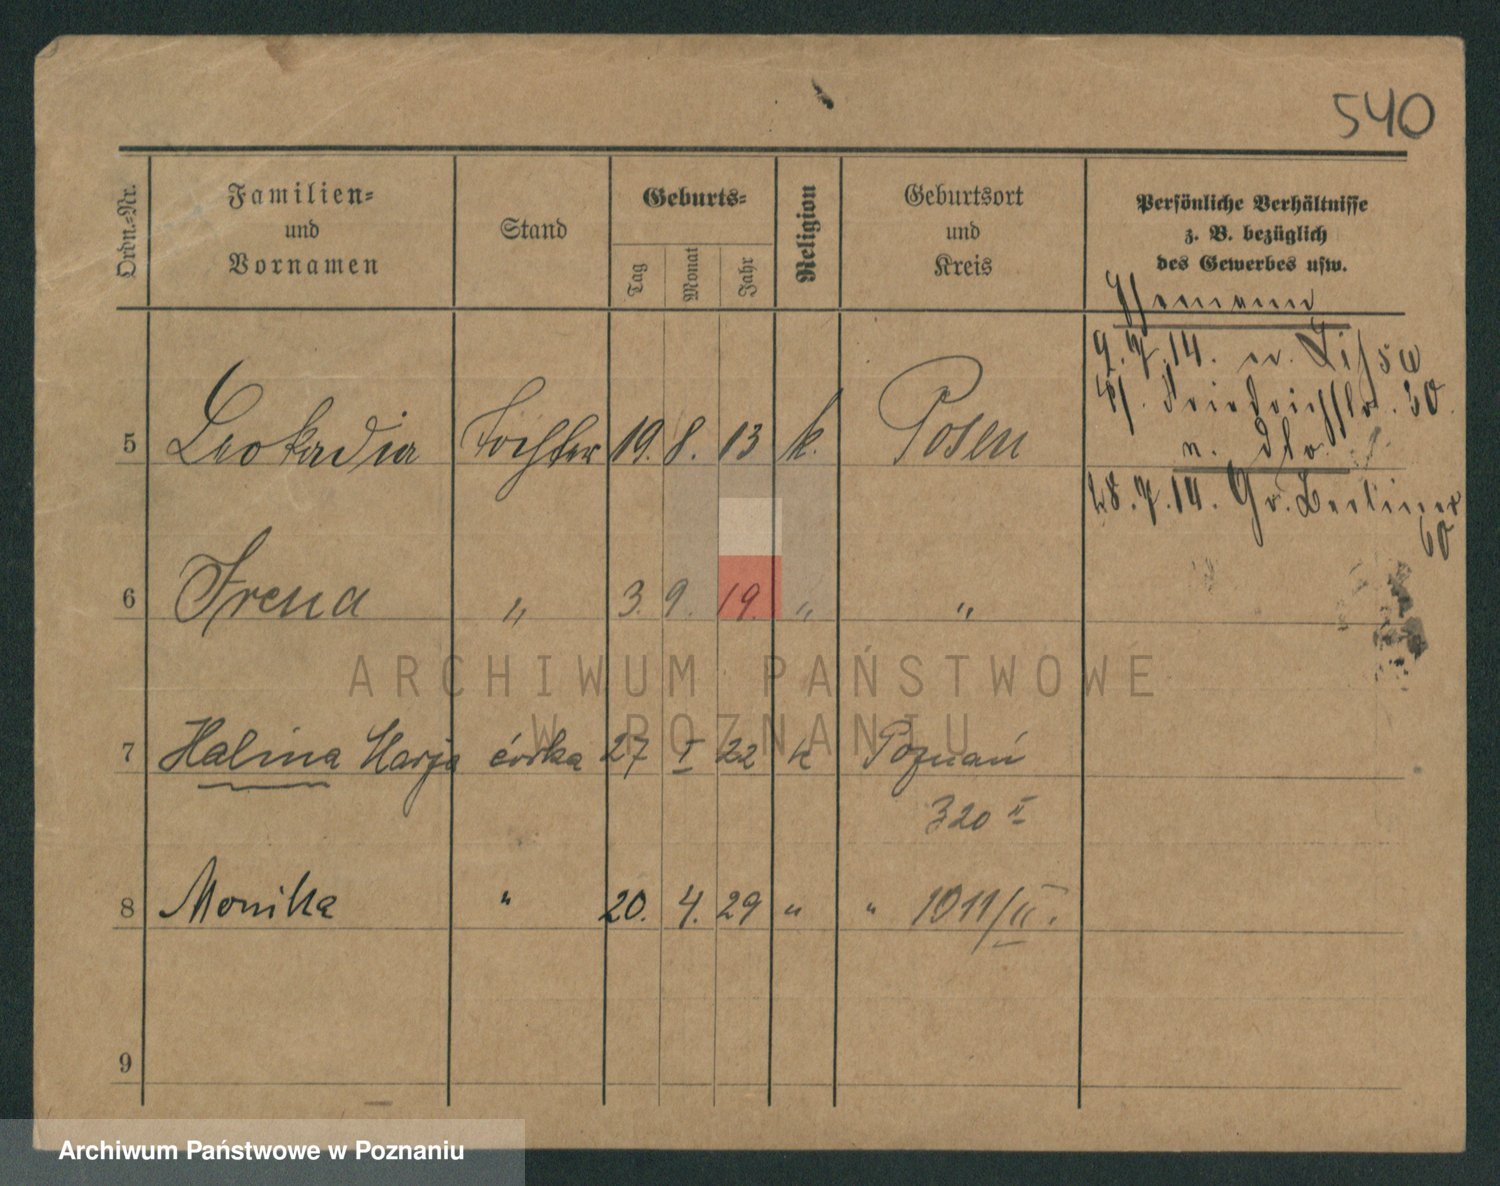 540
Ordn.-Nr.
Familien-
und
Vornamen
Stand
Geburts-
Tag
Monat
Jahr
Religion
Geburtsort
und
Kreis
Persönliche Verhältnisse
z. B. bezüglich
des Gewerbes usw.
Ehemann
9.7.14. n. Lissa
Friedrichstr. 30.
n. dto.
28.7.14. Gr. Berliner
60
5 Leokadia Tochter 19. 8. 13 k. Posen
6 Irena " 3. 9. 19. " "
7 Halina Marja córka 27 I 22 k Poznań
320 II
8 Monika " 20. 4. 29 " " 1011/II.
9
ARCHIWUM PAŃSTWOWE
W POZNANIU
Archiwum Państwowe w Poznaniu